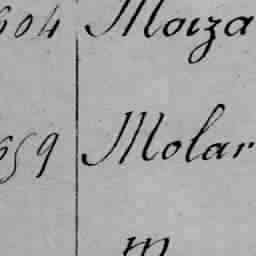 604 Moiza
659 Molar
m